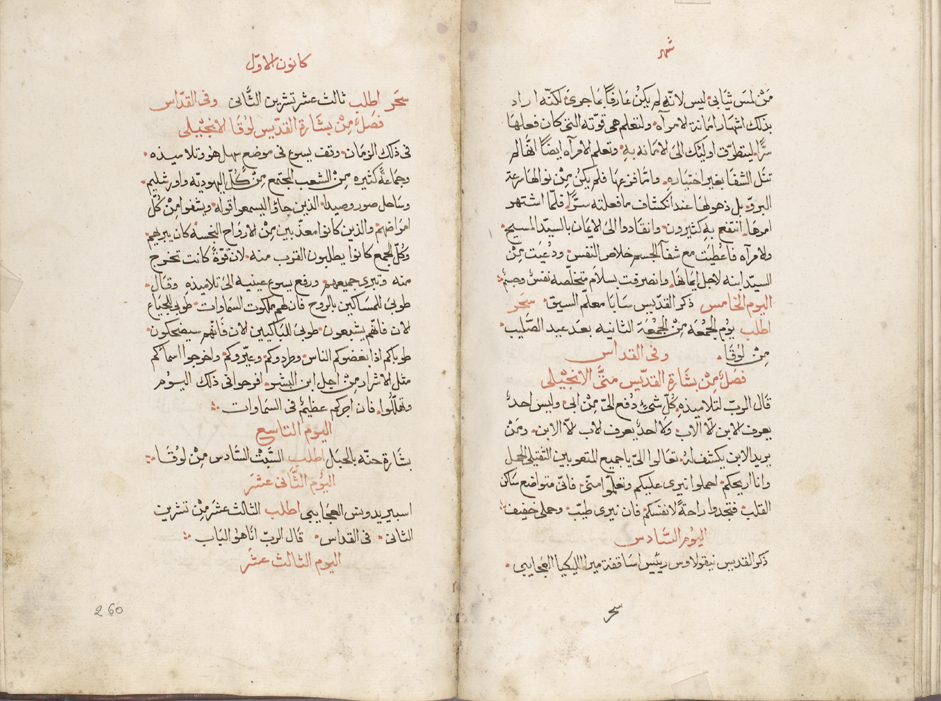 شهر
مَن لمس ثيابى ليس لانّه لم يكُن عارفًا بما جرى لكنّه اراد
بذلك اشهار امانة الامرآه ولنعلم هى قوّته التى كان فعلها
سرًّا ليتطرّق اوليك الى الامانه به وتعلم الامرآه ايضًا انّها لم
تنل الشفا بغير اختياره وامّا فزعها فلم يكن مِن نوالها رعة
البرو بل ذهولها عند انكشاف ما فعلته سرًّا فلمّا اشتهر
امرها انتفع به كثيرون وانقادوا الى الايمان بالسيّد المسيح
والامرآه فاعُطيت مع شفآ الجسم خلاص النفس ودعيت مِن
السيّد ابنه لاجل ايمانها وانصرفت بسلام متخلّصه نفسٌ وجسم
اليوم الخامس ذكر القدّيس سابا معلّم السيق سحر
اطلب يوم الجمعه مِن الجمعة الثانيه بعد عيد الصليب
مِن لوقا وفى القداس
فصلٌ مِن بشارة القديس متّى الانجيلى
قال الربّ لتلاميذه كُلّ شىء دفع الىّ مِن ابى وليس احدٌ
يعرف الابن الّا الاب ولا احدٌ يعرف الاب الّا الابن ومَن
يريد الابن يكشف له تعالوا الىّ يا جميع المتعوبين الثقيلى الحمل
وانا اريحكم احملوا نيرى عليكم وتعلّموا منّى فانّى متواضع ساكن
القلب فتجدوا راحةً لانفسكم فان نيرى طيّب وحملى خفيف
اليوم السّادس
ذكر القديس نيقولاوس رييّس اساقفة ميرا الليكيا العجايبى
سحر
كانون الاوّل
سحر اطلب ثالث عشر تشرين الثّانى وفى القدّاس
فصلٌ مِن بشارة القديس لوقا الانجيلى
فى ذلك الزمان وقف يسوع فى موضع سهل هو وتلاميذه
وجماعةٌ كثيره مِن الشعب المجتمع مِن كُلّ اليهوديّه واورشليم
وساحل صور وصيدا الذين جاؤا ليسمعوا قوله ويشفوا مِن كُلّ
امراضهم والذين كانوا معذّبين مِن الارواح النجسه كان يبريهم
وكُلّ الجمع كانوا يطلبون القرب منه لان قوةً كانت تخرج
منه وتبرى جميعهم ورفع يسوع عينيه الى تلاميذه وقال
طوبى للمساكين بالروح فان لهم ملكوت السماوات طوبى للجياع
الان فانّهم يشبعون طوبى للباكيين الان فانّهم سيضحكون
طوباكم اذا ابغضوكم الناس وطردوكم وعيّروكم واخرجوا اسمآكم
مثل الاشرار مِن اجل ابن البشر افرحوا فى ذلك اليوم
وتهلّلوا فان اجركم عظيمٌ فى السماوات
اليوم التاسع
بشارة حنّه بالحبل اطلب السّبت السّادس مِن لوقا
اليوم الثّانى عشر
اسبيريدونس العجايبى اطلب الثالث عشر مِن تشرين
الثانى فى القداس قال الربّ انا هو الباب
اليوم الثالث عشر
260